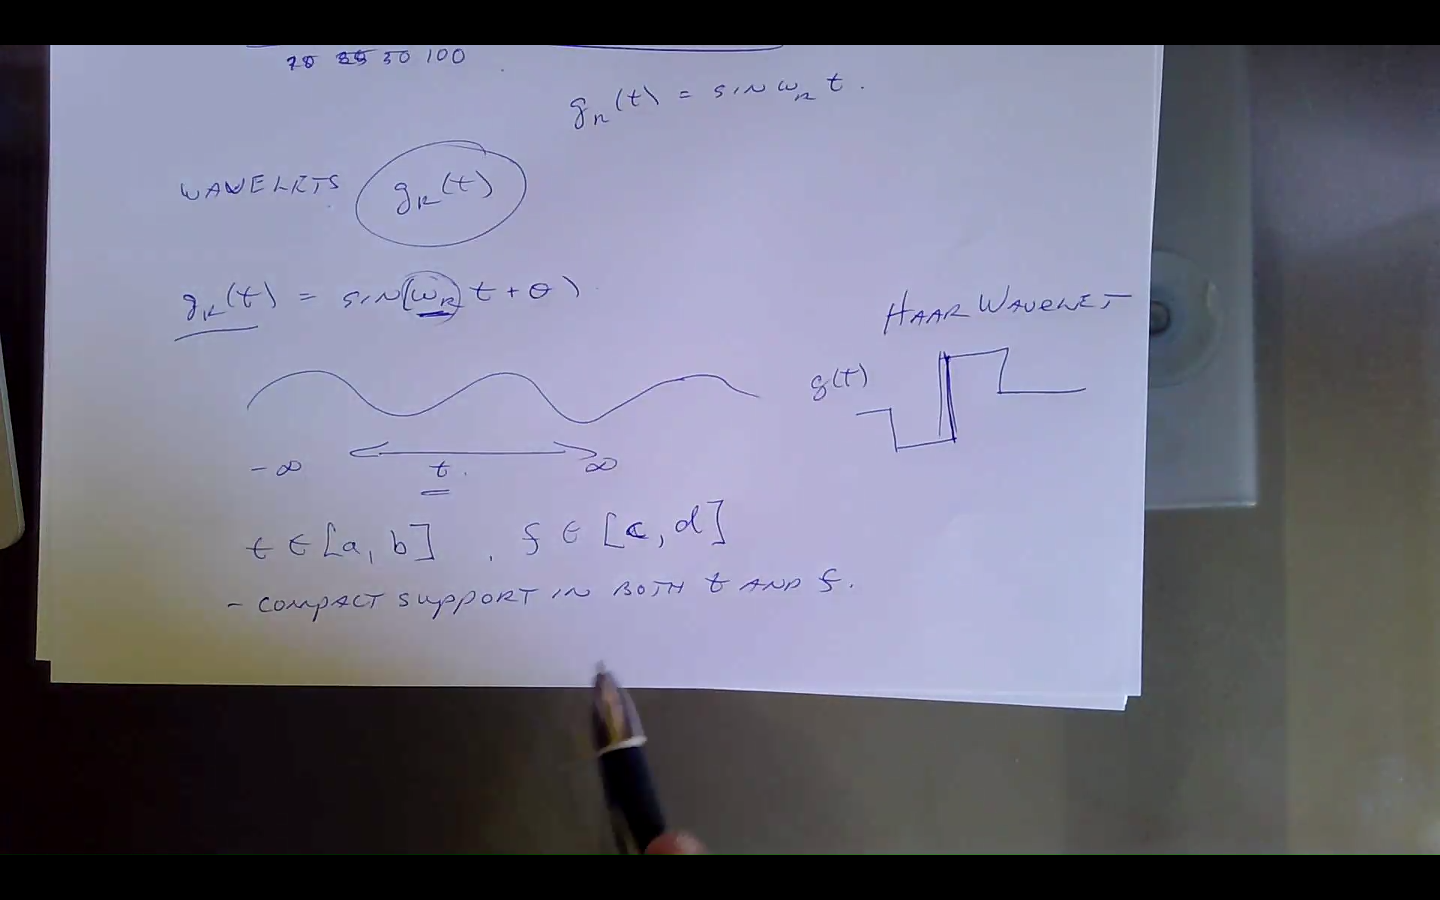 30 100
gₖ(t) = SIN ωₖ t.
WAVELETS gₖ(t)
gₖ(t) = SIN(ωₖ t + θ)
HAAR WAVELET
g(t)
-∞ t. ∞
t ∈ [a, b] , f ∈ [c, d]
- COMPACT SUPPORT IN BOTH t AND f.